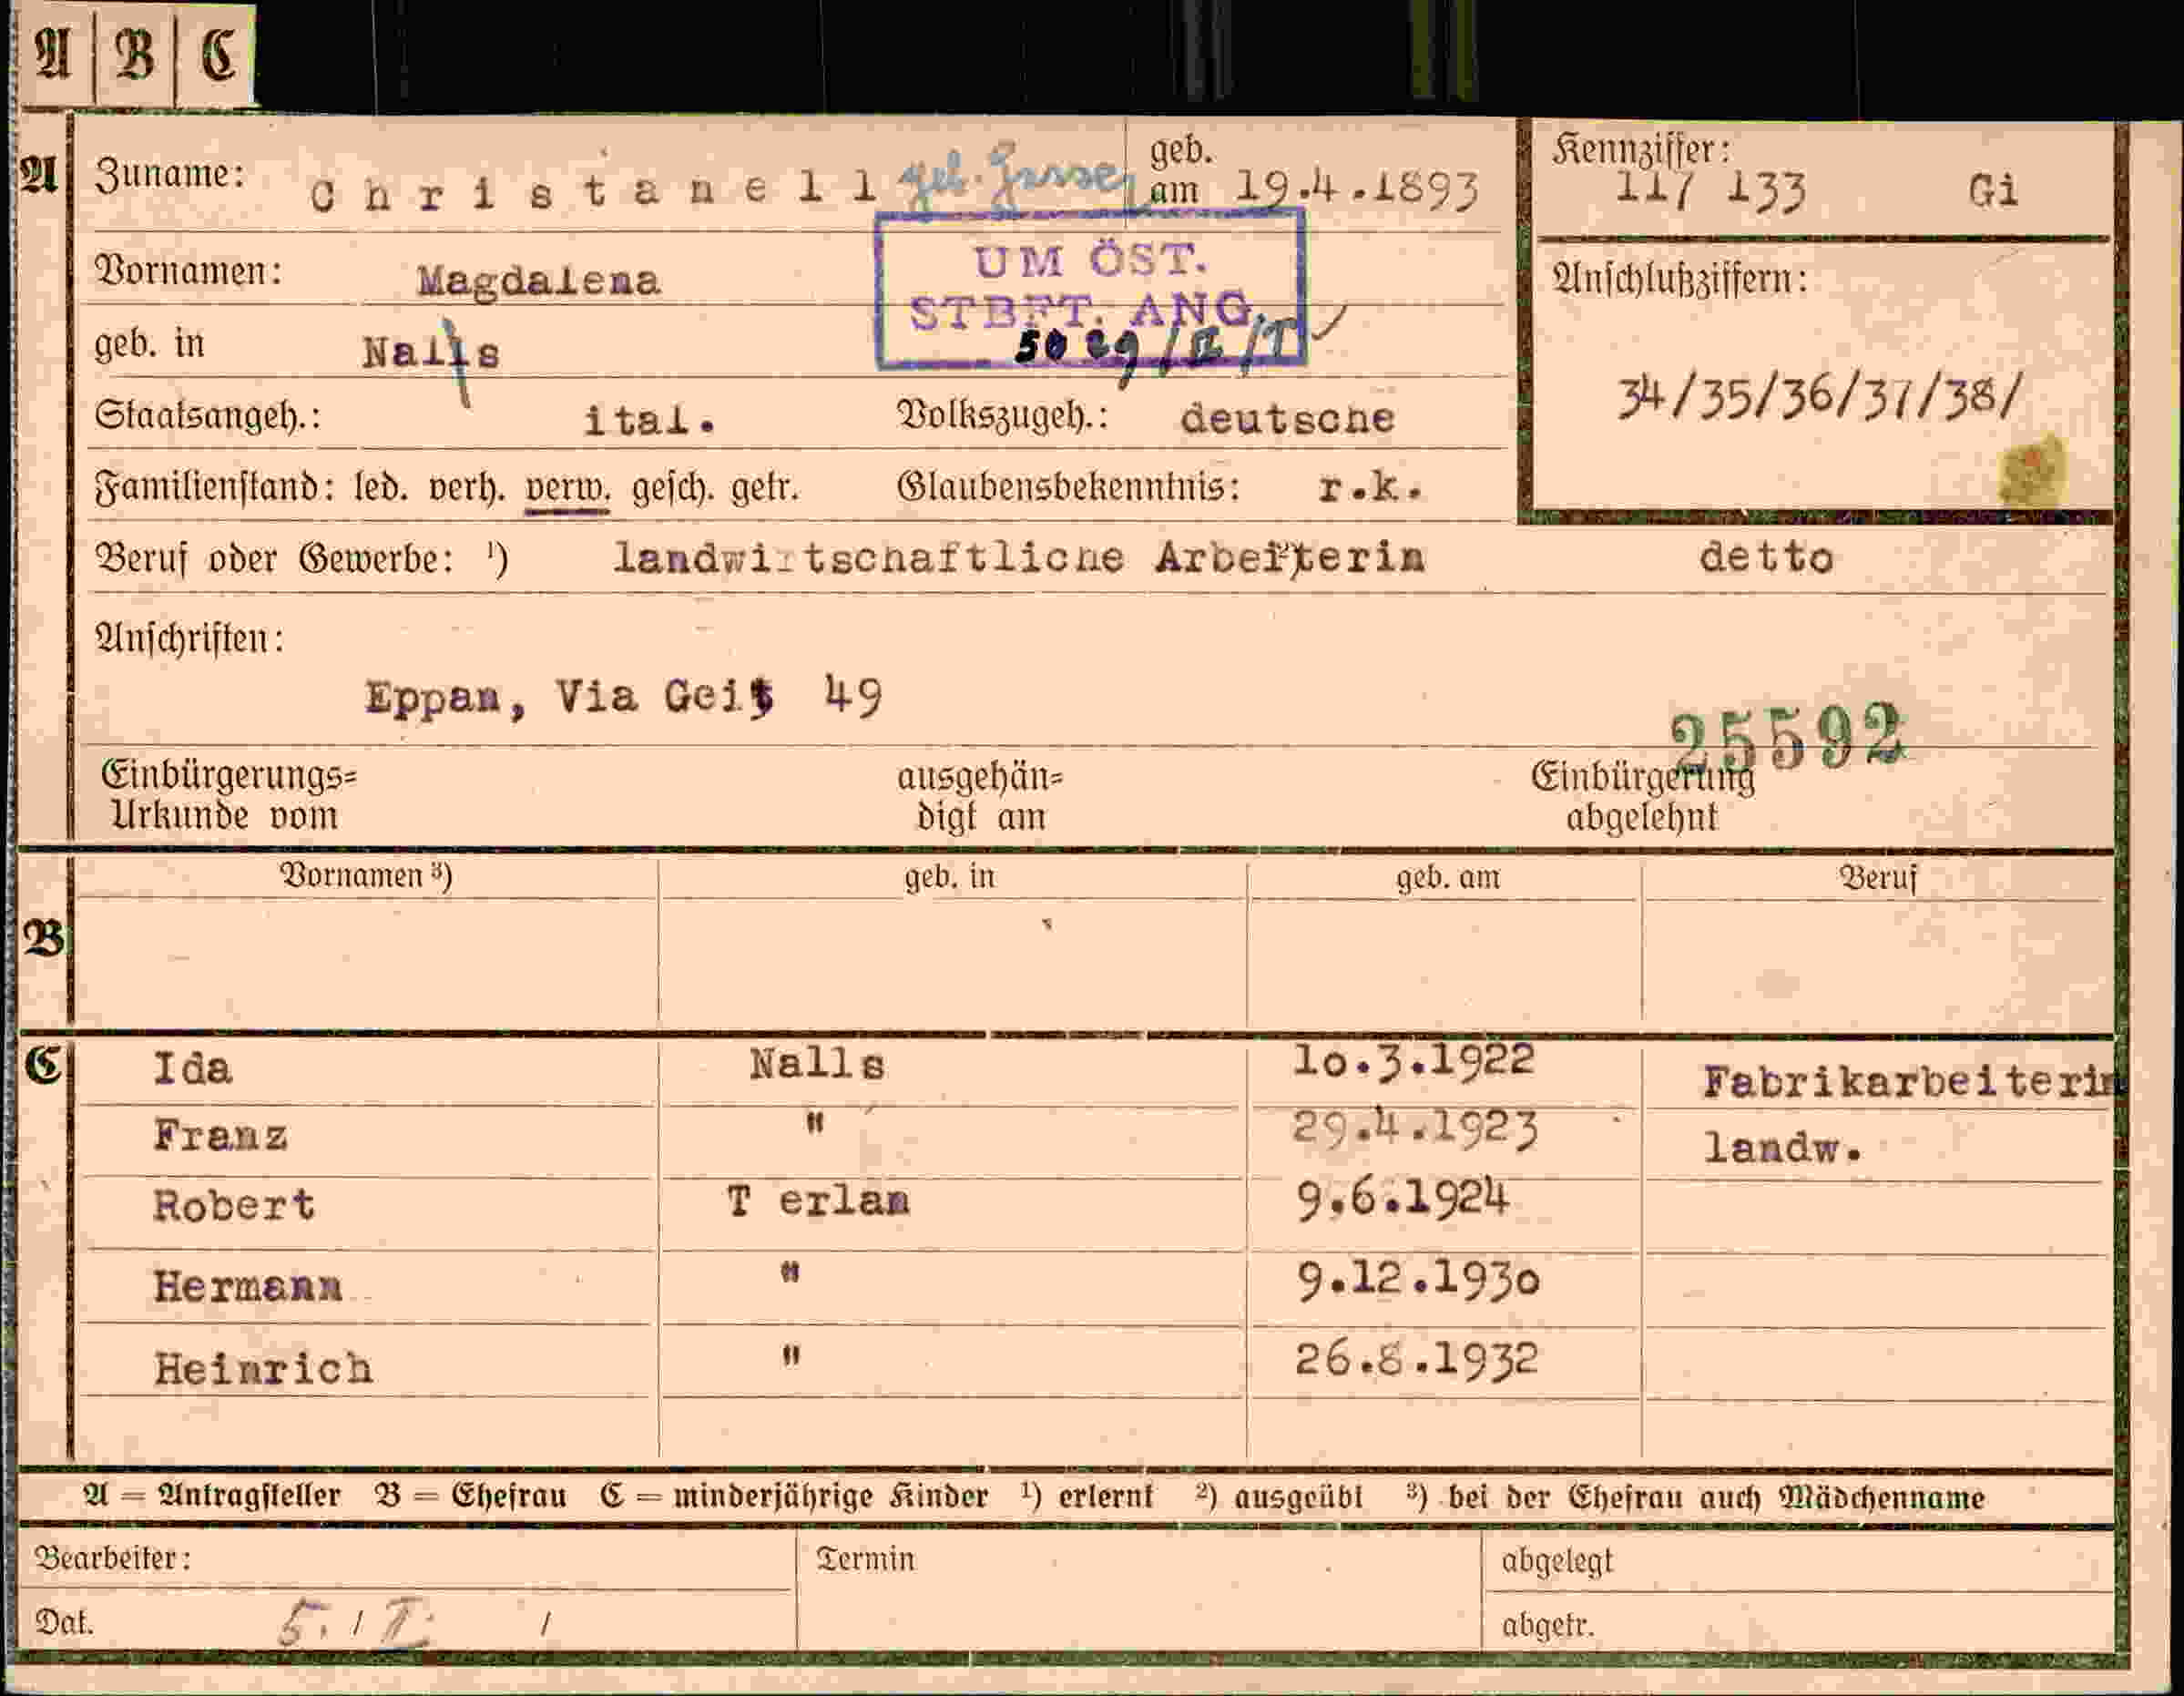 A B C
A Zuname: Christanell geb. Gasser geb. am 19.4.1893
Kennziffer: 117 133 Gi
Vornamen: Magdalena
UM ÖST. STBFT. ANG.
geb. in Nalls
Anschlußziffern: 34/35/36/37/38/
Staatsangeh.: ital. Volkszugeh.: deutsche
Familienstand: led. verh. verw. gesch. getr. Glaubensbekenntnis: r.k.
Beruf oder Gewerbe: ¹) landwirtschaftliche Arbeiterin ²) detto
Anschriften:
Eppan, Via 49
25592
Einbürgerungs=Urkunde vom ausgehän=digt am Einbürgerung abgelehnt
Vornamen ³) geb. in geb. am Beruf
B
C Ida Nalls 10.3.1922 Fabrikarbeiterin
Franz " 29.4.1923 landw.
Robert T erlan 9.6.1924
Hermann " 9.12.1930
Heinrich " 26.8.1932
A = Antragsteller B = Ehefrau C = minderjährige Kinder ¹) erlernt ²) ausgeübt ³) bei der Ehefrau auch Mädchenname
Bearbeiter: Termin abgelegt
Dat. 5. / I. / abgetr.